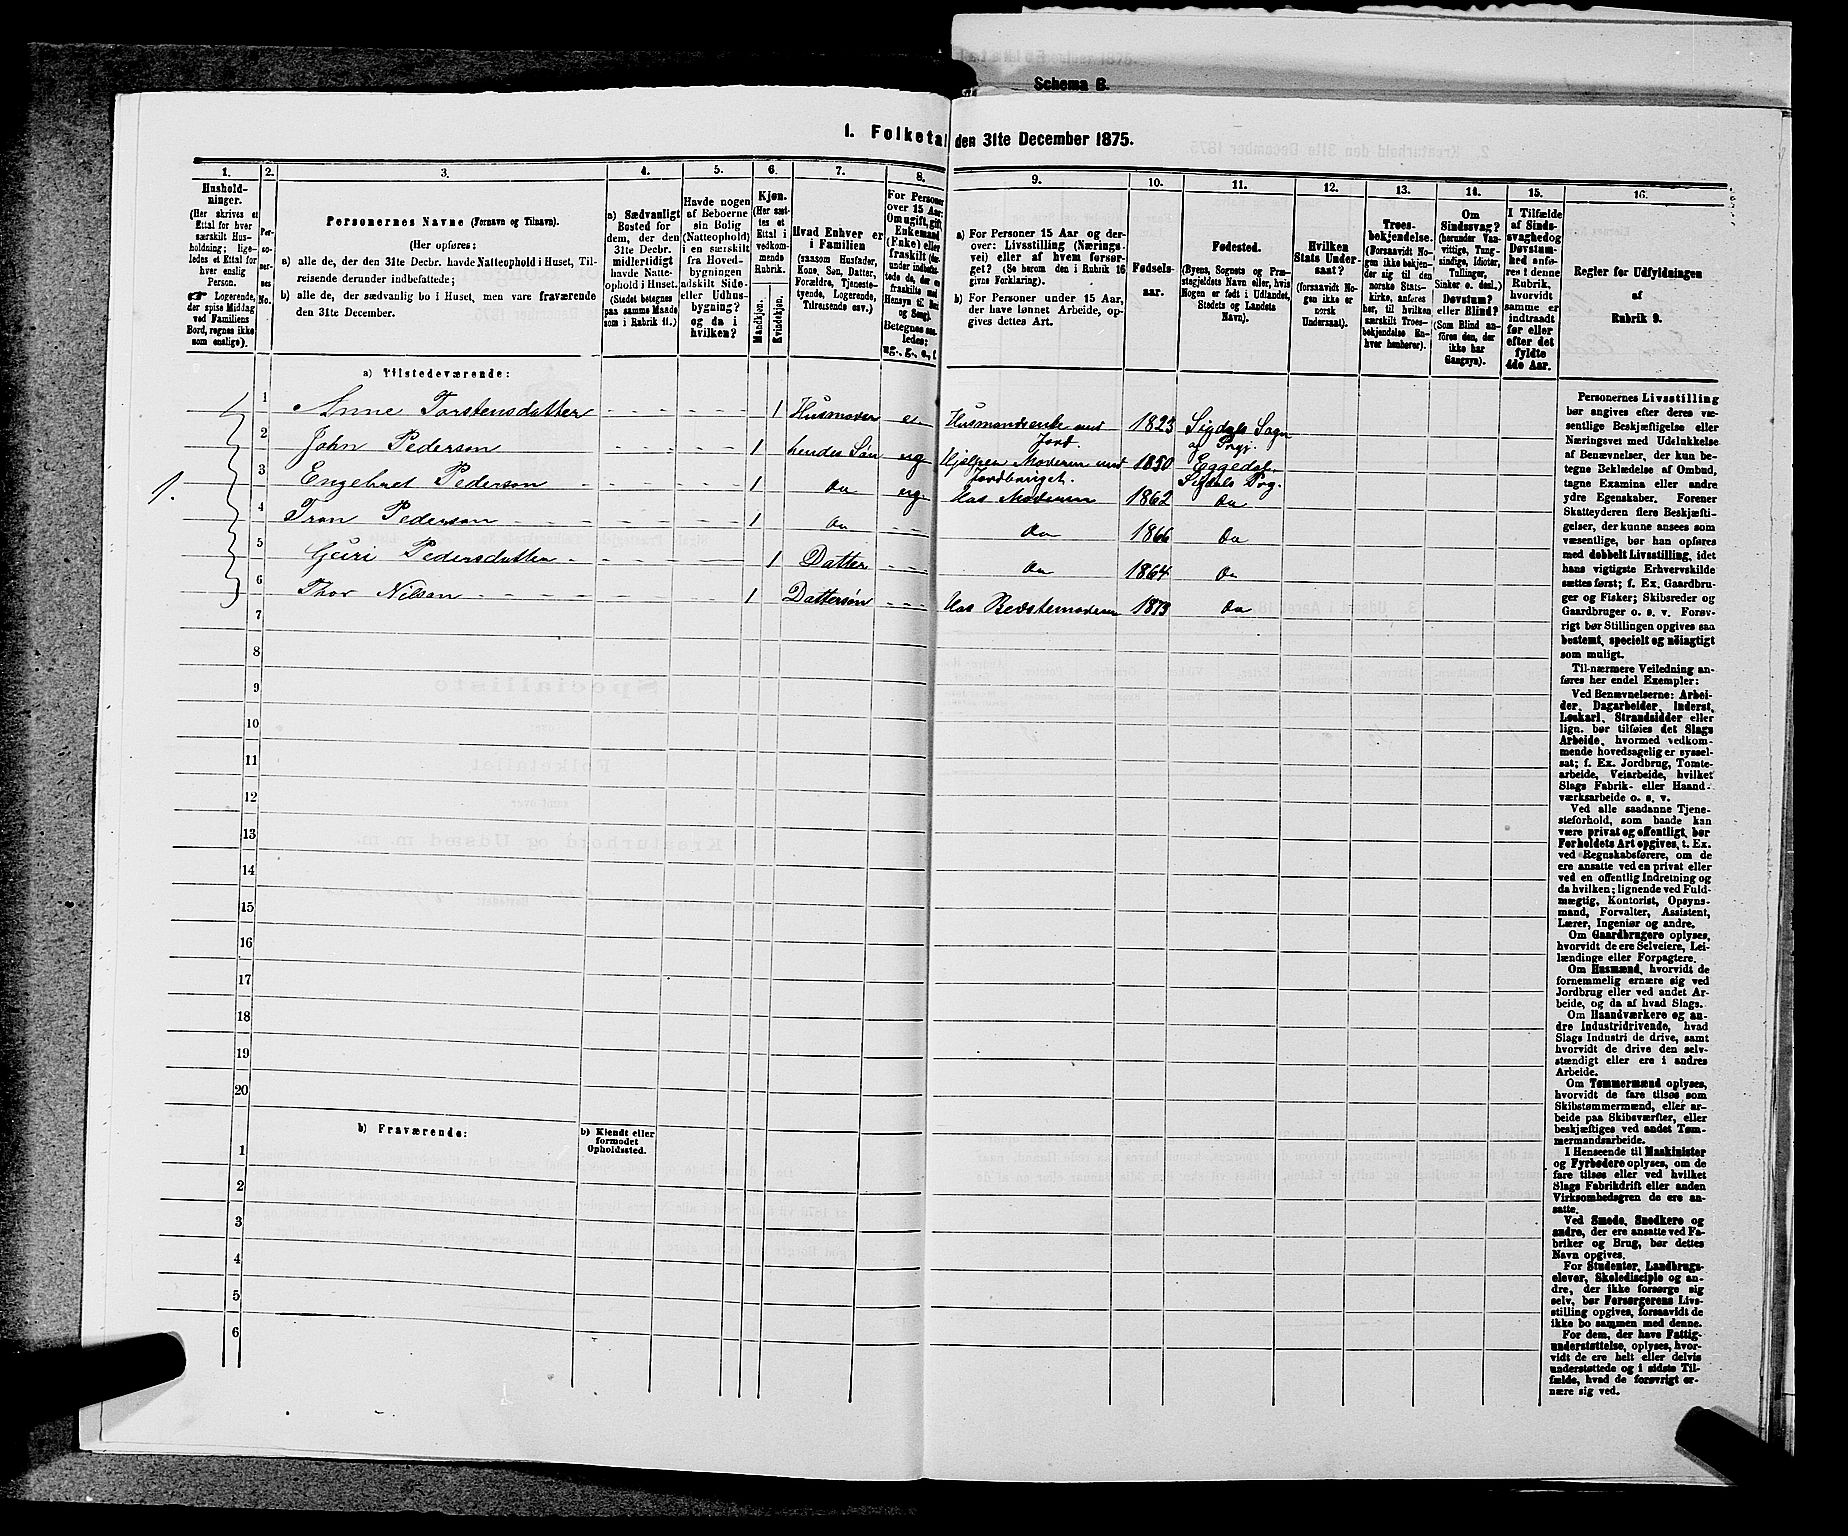 Schema B.
1. Folketal den 31te December 1875.
1.
Hushold-
ninger.
(Her skrives et
Ettal for hver
særskilt Hus-
holdning; lige-
ledes et Ettal
for hver
enslig
Person.
Logerende,
der spise Middag
ved Familiens
Bord, regnes ikke
som enslige).
2.
Per-
so-
ner-
nes
No.
3.
Personernes Navne (Fornavn og Tilnavn).
(Her opføres:
a) alle de, der den 31te Decbr. havde Natteophold i Huset, Til-
reisende derunder indbefattede;
b) alle de, der sædvanlig bo i Huset, men vare fraværende
den 31te December.
4.
a) Sædvanligt
Bosted for
dem, der den
31te Decbr.
midlertidigt
havde Natte-
ophold i Huset.
(Stedet betegnes
paa samme Maade
som i Rubrik 11.)
5.
Havde nogen
af Beboerne
sin Bolig
(Natteophold)
i en særskilt
fra Hoved-
bygningen
adskilt Side-
eller Udhus-
bygning?
og da i
hvilken?
6.
Kjøn.
(Her sæt-
tes et
Ettal i
vedkom-
mende
Rubrik.
Mandkjøn.
Kvindekjøn.
7.
Hvad Enhver er
i Familien
(saasom Husfader,
Kone, Søn, Datter,
Forældre, Tjeneste-
tyende, Logerende,
Tilreisende osv.)
8.
For Personer
over 15 Aar:
Om ugift, gift,
Enkemand
(Enke) eller
fraskilt
Betegnes saa-
ledes:
ug., g., e., f.
9.
a) For Personer 15 Aar og der-
over: Livsstilling (Nærings-
vei) eller af hvem forsør-
get? (Se herom den i Rubrik 16
givne Forklaring).
b) For Personer under 15 Aar,
der have lønnet Arbeide, op-
gives dettes Art.
10.
Fødsels-
aar.
11.
Fødested.
(Byens, Sognets og Præ-
stegjeldets Navn eller, hvis
Nogen er født i Udlandet,
Stedets og Landets
Navn).
12.
Hvilken
Stats Under-
saat?
(forsaavidt No-
gen ikke er
norsk
Undersaat).
13.
Troes-
bekjendelse.
(Forsaavidt No-
gen ikke bekjen-
der sig til den
norske Stats-
kirke, anføres
her, til hvilken
særskilt Troes-
bekjendelse En-
hver henhører).
14.
Om
Sindssvag?
(herunder Van-
vittige, Tung-
sindige, Idioter,
Tullinger,
Sinker o. desl.)
Døvstum?
eller Blind?
(Som Blind an-
føres den, der
ikke har
Gangsyn).
15.
I Tilfælde
af Sinds-
svaghed og
Døvstum-
hed anfø-
res i denne
Rubrik,
hvorvidt
samme er
indtraadt
før eller
efter det
fyldte
4de Aar.
16.
Regler for Udfyldningen
af
Rubrik 9.
a) Tilstedeværende:
1.
1 Anne Torstensdatter 1 Husmoder e. Husmandsenke med Jord. 1823 Sigdals Sogn og Pregj.
2 John Pederson 1 hendes Søn ug Hjelper Moderen med Jordbruget. 1850 Eggedal Sigdals Prg.
3 Engebret Pederson 1 Do ug. Hos Moderen 1862 Do
4 Tron Pederson 1 Do Do 1866 Do
5 Guri Pedersdatter 1 Datter Do 1864 Do
6 Thor Nilson 1 Dattersøn Hos Bedstemoderen 1873 Do
7
8
9
10
11
12
13
14
15
16
17
18
19
20
b) Fraværende:
b) Kjendt eller
formodet
Opholdssted.
1
2
3
4
5
6
Personernes Livsstilling
bør angives efter deres væ-
sentlige Beskjæftigelse eller
Næringsvei med Udelukkelse
af Benævnelser, der kun be-
tegne Beklædelse af Ombud,
tagne Examina eller andre
ydre Egenskaber. Forener
Skatteyderen flere Beskjæfti-
gelser, der kunne ansees som
væsentlige, bør han opføres
med dobbelt Livsstilling, idet
hans vigtigste Erhvervskilde
sættes først; f. Ex. Gaardbru-
ger og Fisker; Skibsreder og
Gaardbruger o. s. v. Forøv-
rigt bør Stillingen opgives saa
bestemt, specielt og nöiagtigt
som muligt.
Til nærmere Veiledning an-
føres her endel Exempler:
Ved Benævnelserne: Arbei-
der, Dagarbeider, Inderst,
Løskarl, Strandsidder eller
lign. bør tilføies det Slags
Arbeide, hvormed vedkom-
mende hovedsagelig er syssel-
sat; f. Ex. Jordbrug, Tomte-
arbeide, Veiarbeide, hvilket
Slags Fabrik- eller Haand-
værksarbeide o. s. v.
Ved alle saadanne Tjene-
steforhold, som baade kan
være privat og offentligt, bør
Forholdets Art opgives, t. Ex.
ved Regnskabsførere, om de
ere ansatte ved en privat eller
ved en offentlig Indretning og
da hvilken; lignende ved Fuld-
mægtig, Kontorist, Opsyns-
mand, Forvalter, Assistent,
Lærer, Ingeniør og andre.
Om Gaardbrugere oplyses,
hvorvidt de ere Selveiere, Lei-
lændinge eller Forpagtere.
Om Husmænd, hvorvidt de
fornemmelig ernære sig ved
Jordbrug eller ved andet Ar-
beide, og da af hvad Slags.
Om Haandværkere og an-
dre Industridrivende, hvad
Slags Industri de drive, samt
hvorvidt de drive den selv-
stændigt eller ere i andres
Arbeide.
Om Tømmermænd oplyses,
hvorvidt de fare tilsøs som
Skibstømmermænd, eller ar-
beide paa Skibsværfter, eller
beskjæftiges ved andet Tøm-
mermandsarbeide.
I Henseende til Maskinister
og Fyrbødere oplyses, om de
fare tilsøs eller ved hvilket
Slags Fabrikdrift eller anden
Virksomhedsgren de ere an-
satte.
Ved Smede, Snedkere og
andre, der ere ansatte ved Fa-
briker og Brug, bør dettes
Navn opgives.
For Studenter, Landbrugs-
elever, Skoledisciple og an-
dre, der ikke forsørge sig
selv, bør Forsørgerens Livs-
stilling opgives, forsaavidt de
ikke bo sammen med denne.
For dem, der have Fattig-
understøttelse, oplyses, hvor-
vidt de ere helt eller delvis
understøttede og i sidste Til-
fælde, hvad de forøvrigt er-
nære sig ved.